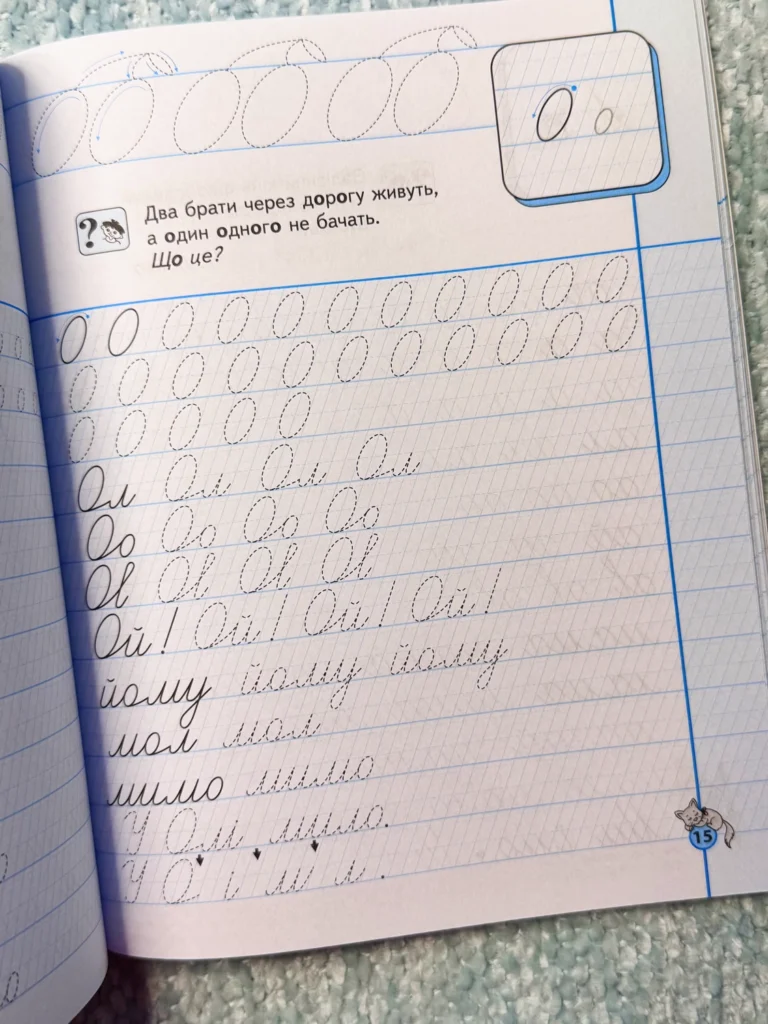 О о
Два брати через дорогу живуть,
а один одного не бачать.
Що це?
О О О О О О О О О О О
О О О О О О О О О О О
О О О О О
Ол Ол Ол Ол
Оо Оо Оо Оо
Ов Ов Ов Ов
Ой! Ой! Ой! Ой!
йому йому йому
мол мол
мимо мимо
У Олі мило.
У О і м л .
15